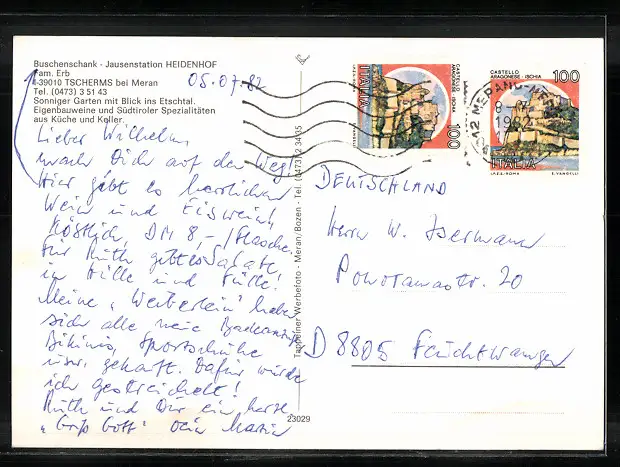 Buschenschank - Jausenstation HEIDENHOF
Fam. Erb
I-39010 TSCHERMS bei Meran
Tel. (0473) 3 51 43
Sonniger Garten mit Blick ins Etschtal.
Eigenbauweine und Südtiroler Spezialitäten
aus Küche und Keller.
05.07.82
Lieber Wilhelm,
mach Dich auf den Weg!
Hier gibt es herrlichen
Wein und Eiswein,
köstlich, DM 8,-/Flasche.
Für Ruth gibt es Salat
in Hülle und Fülle!
Meine "Weiberlein" haben
sich alle neue Badeanzüge
Bikinis, Sportschuhe
usw. gekauft. Dafür wurde
ich gestreichelt!
Ruth und Dir ein herzl.
"Grüß Gott" Dein Martin
Tappeiner Werbefoto - Meran/Bozen - Tel. (0473) 2 34 35
23029
CASTELLO
ARAGONESE - ISCHIA
100
ITALIA
I.P.Z.S. - ROMA
CASTELLO
ARAGONESE - ISCHIA
100
ITALIA
I.P.Z.S. - ROMA
E. VANGELLI
1982
DEUTSCHLAND
Herrn W. Isermann
Panoramastr. 20
D 8805 Feuchtwangen